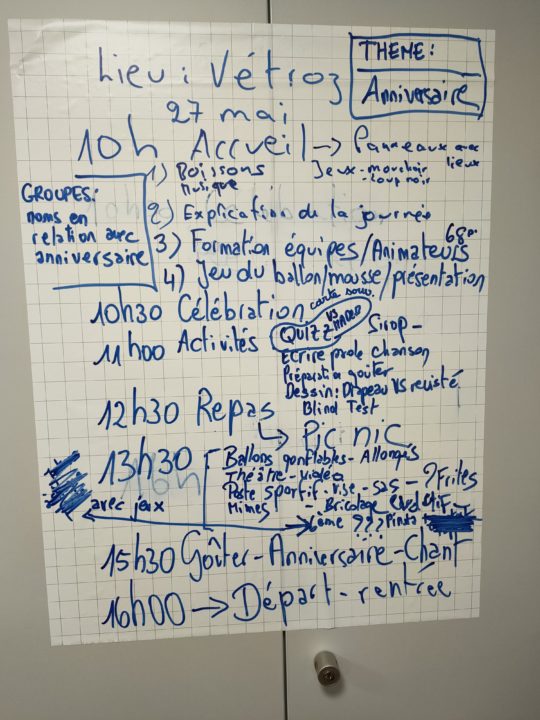 Lieu : Vétroz
THEME :
Anniversaire
27 mai
10h Accueil → Panneaux avec lieux
Jeux - mouchoir
- loup noir
GROUPES:
noms en
relation avec
anniversaire
1) Boissons
musique
2) Explication de la journée
3) Formation équipes/Animateurs
4) Jeu du ballon/mousse/présentation
10h30 Célébration
carte souv.
11h00 Activités QUIZZ VS Sirop -
Ecrire parole chanson
Préparation goûter
Dessin: Drapeau VS revisité
Blind Test
12h30 Repas
↳ Pic nic
13h30
Ballons gonflables - Allongés
Théâtre - vidéo
Poste sportif - - sas - ? Frites
Mimes - Bricolage
avec jeux
??? Pinata
15h30 Goûter - Anniversaire - Chant
16h00 → Départ - rentrée